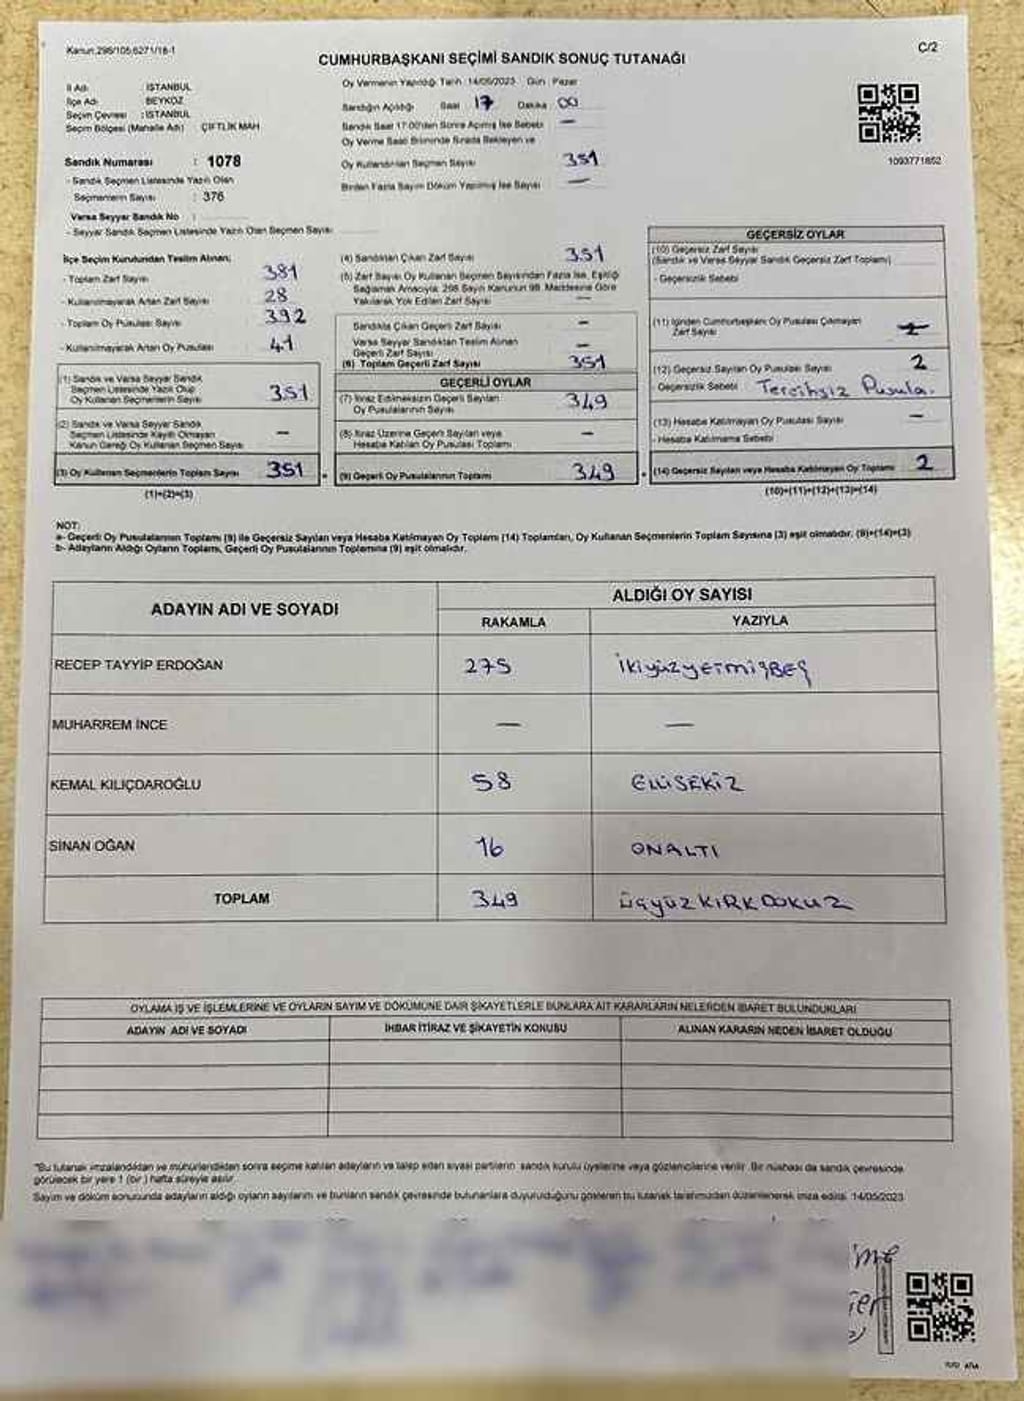 Kanun:298/105,6271/18-1
C/2
CUMHURBAŞKANI SEÇİMİ SANDIK SONUÇ TUTANAĞI
İl Adı : İSTANBUL
İlçe Adı : BEYKOZ
Seçim Çevresi : İSTANBUL
Seçim Bölgesi (Mahalle Adı) ÇİFTLİK MAH
Sandık Numarası : 1078
- Sandık Seçmen Listesinde Yazılı Olan
Seçmenlerin Sayısı : 376
Varsa Seyyar Sandık No :
- Seyyar Sandık Seçmen Listesinde Yazılı Olan Seçmen Sayısı
Oy Vermenin Yapıldığı Tarih: 14/05/2023 Gün : Pazar
Sandığın Açıldığı Saat 17 Dakika 00
Sandık Saat 17:00'den Sonra Açılmış İse Sebebi —
Oy Verme Saati Bitiminde Sırada Bekleyen ve
Oy Kullandırılan Seçmen Sayısı 351
Birden Fazla Sayım Döküm Yapılmış İse Sayısı —
1093771852
İlçe Seçim Kurulundan Teslim Alınan;
- Toplam Zarf Sayısı 381
- Kullanılmayarak Artan Zarf Sayısı 28
- Toplam Oy Pusulası Sayısı 392
- Kullanılmayarak Artan Oy Pusulası 41
(1) Sandık ve Varsa Seyyar Sandık
Seçmen Listesinde Yazılı Olup
Oy Kullanan Seçmenlerin Sayısı 351
(2) Sandık ve Varsa Seyyar Sandık
Seçmen Listesinde Kayıtlı Olmayan
Kanun Gereği Oy Kullanan Seçmen Sayısı —
(3) Oy Kullanan Seçmenlerin Toplam Sayısı 351
(1)+(2)=(3)
(4) Sandıktan Çıkan Zarf Sayısı 351
(5) Zarf Sayısı Oy Kullanan Seçmen Sayısından Fazla İse, Eşitliği
Sağlamak Amacıyla; 298 Sayılı Kanunun 98. Maddesine Göre
Yakılarak Yok Edilen Zarf Sayısı —
Sandıkta Çıkan Geçerli Zarf Sayısı —
Varsa Seyyar Sandıktan Teslim Alınan
Geçerli Zarf Sayısı —
(6) Toplam Geçerli Zarf Sayısı 351
GEÇERLİ OYLAR
(7) İtiraz Edilmeksizin Geçerli Sayılan
Oy Pusulalarının Sayısı 349
(8) İtiraz Üzerine Geçerli Sayılan veya
Hesaba Katılan Oy Pusulası Toplamı —
(9) Geçerli Oy Pusulalarının Toplamı 349
GEÇERSİZ OYLAR
(10) Geçersiz Zarf Sayısı
(Sandık ve Varsa Seyyar Sandık Geçersiz Zarf Toplamı)
- Geçersizlik Sebebi
(11) İçinden Cumhurbaşkanı Oy Pusulası Çıkmayan
Zarf Sayısı
(12) Geçersiz Sayılan Oy Pusulası Sayısı 2
- Geçersizlik Sebebi Tercihsiz Pusula.
(13) Hesaba Katılmayan Oy Pusulası Sayısı —
- Hesaba Katılmama Sebebi
(14) Geçersiz Sayılan veya Hesaba Katılmayan Oy Toplamı 2
(10)+(11)+(12)+(13)=(14)
NOT:
a- Geçerli Oy Pusulalarının Toplamı (9) ile Geçersiz Sayılan veya Hesaba Katılmayan Oy Toplamı (14) Toplamları, Oy Kullanan Seçmenlerin Toplam Sayısına (3) eşit olmalıdır. (9)+(14)=(3)
b- Adayların Aldığı Oyların Toplamı, Geçerli Oy Pusulalarının Toplamına (9) eşit olmalıdır.
ADAYIN ADI VE SOYADI
ALDIĞI OY SAYISI
RAKAMLA YAZIYLA
RECEP TAYYİP ERDOĞAN 275 İkiyüzyetmişBEŞ
MUHARREM İNCE — —
KEMAL KILIÇDAROĞLU 58 ELLİSEKİZ
SİNAN OĞAN 16 ONALTI
TOPLAM 349 üçyüzKIRKDOKUZ
OYLAMA İŞ VE İŞLEMLERİNE VE OYLARIN SAYIM VE DÖKÜMÜNE DAİR ŞİKAYETLERLE BUNLARA AİT KARARLARIN NELERDEN İBARET BULUNDUKLARI
ADAYIN ADI VE SOYADI İHBAR İTİRAZ VE ŞİKAYETİN KONUSU ALINAN KARARIN NEDEN İBARET OLDUĞU
"Bu tutanak imzalandıktan ve mühürlendikten sonra seçime katılan adayların ve talep eden siyasi partilerin sandık kurulu üyelerine veya gözlemcilerine verilir. Bir nüshası da sandık çevresinde
görülecek bir yere 1 (bir) hafta süreyle asılır.
Sayım ve döküm sonucunda adayların aldığı oyların sayılarını ve bunların sandık çevresinde bulunanlara duyurulduğunu gösteren bu tutanak tarafımızdan düzenlenerek imza edildi. 14/05/2023